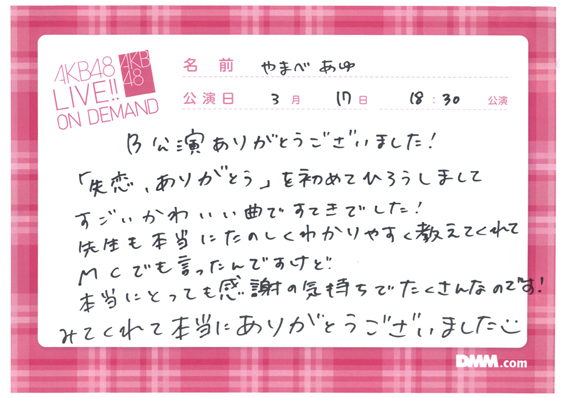 AKB48
LIVE!!
ON DEMAND
AKB
48
名前 やまべ あゆ
公演日 3月 17日 18:30 公演
B公演ありがとうございました!
「失恋、ありがとう」を初めてひろうしまして
すごいかわいい曲ですてきでした!
先生も本当にたのしくわかりやすく教えてくれて
MCでも言ったんですけど
本当にとっても感謝の気持ちでたくさんなのです!
みてくれて本当にありがとうございました
DMM.com